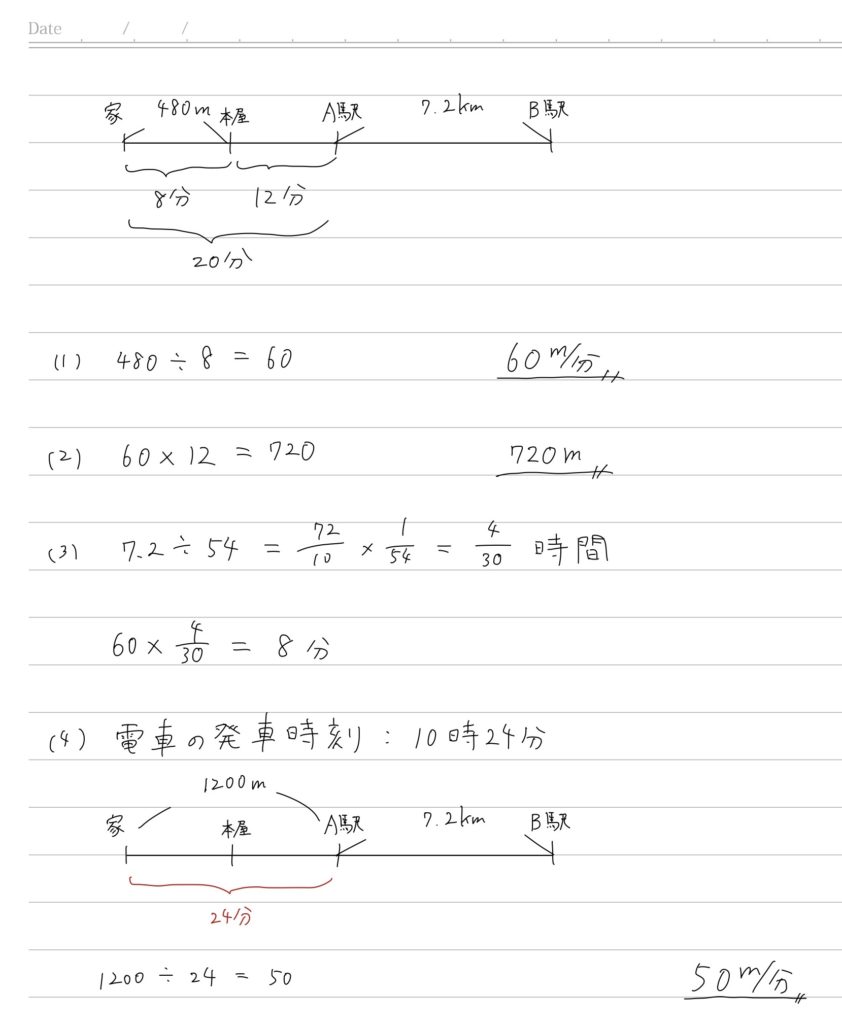 Date / /
家 480m 本屋 A駅 7.2km B駅
8分 12分
20分
(1) 480 ÷ 8 = 60 60 m/分
(2) 60 × 12 = 720 720m
(3) 7.2 ÷ 54 = 72/10 × 1/54 = 4/30 時間
60 × 4/30 = 8 分
(4) 電車の発車時刻 : 10時24分
1200m
家 本屋 A駅 7.2km B駅
24分
1200 ÷ 24 = 50 50 m/分